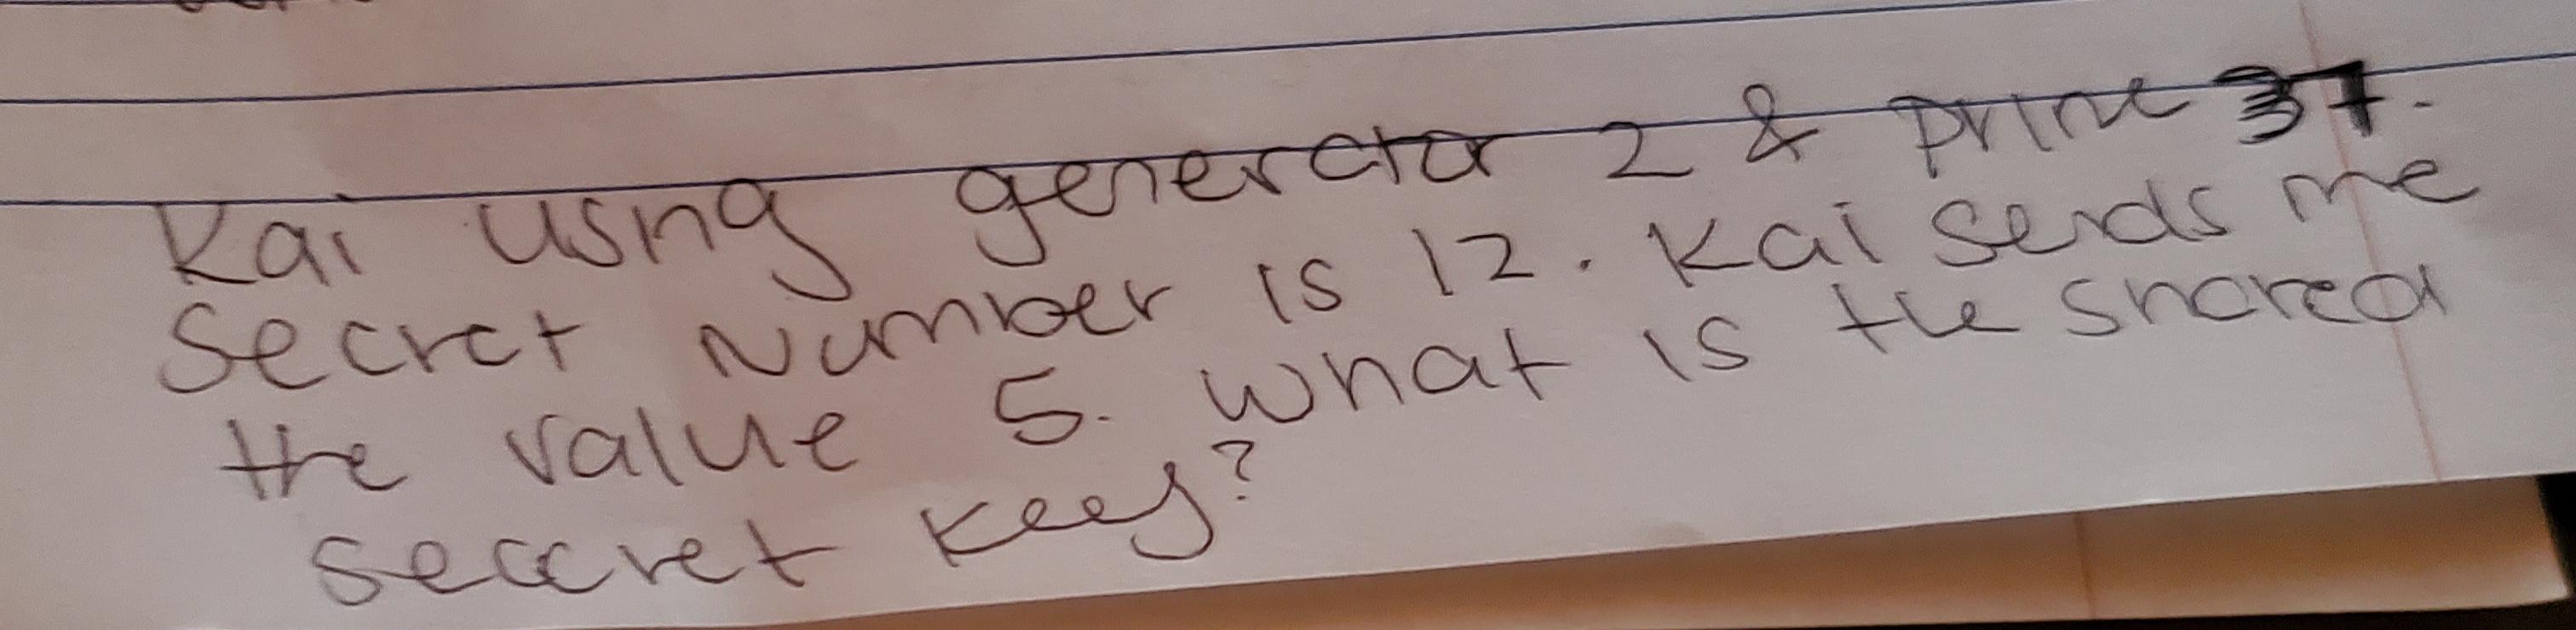 Kai using generator 2 & prime 37.
Secret Number is 12. Kai sends me
the value 5. What is the shared
seccret key?